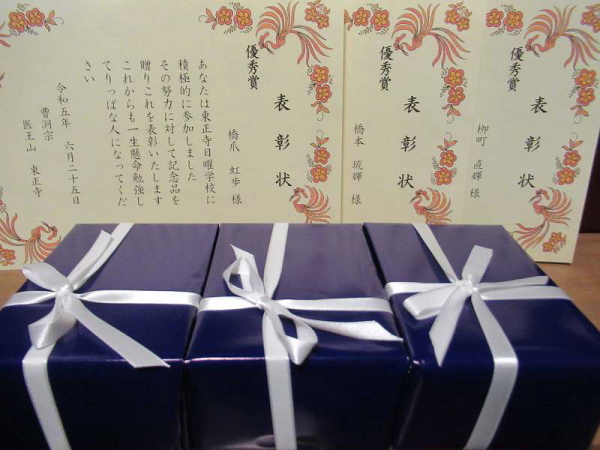 優秀賞
表彰状
橋爪 虹歩 様
あなたは東正寺日曜学校に
積極的に参加しました
その努力に対して記念品を
贈りこれを表彰いたします
これからも一生懸命勉強し
てりっぱな人になってくだ
さい
令和五年 六月二十五日
曹洞宗
医王山 東正寺
優秀賞
表彰状
橋本 琉輝 様
優秀賞
表彰状
柳町 直輝 様